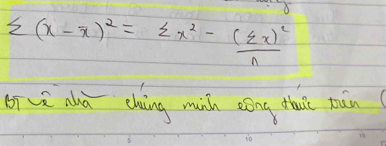 Σ (x - x̄)² = Σx² - (Σx)²/n
BT về nhà chứng minh công thức trên (